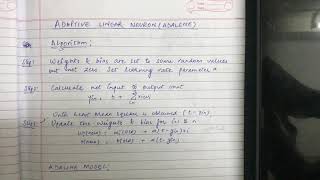 ADAPTIVE LINEAR NEURON (ADALINE)
Algorithm:
Step 1 Weights & bias are set to some random values
but not zero. Set learning rate parameter α
Step 2 Calculate net input to output unit
yin = b + Σ xiwi
Until Least Mean Square is obtained (t - yin),
Step 3: Update the weights & bias for i=1 to n
w(new) = w(old) + α(t-yin)xi
b(new) = b(old) + α(t-yin).
ADALINE MODEL: